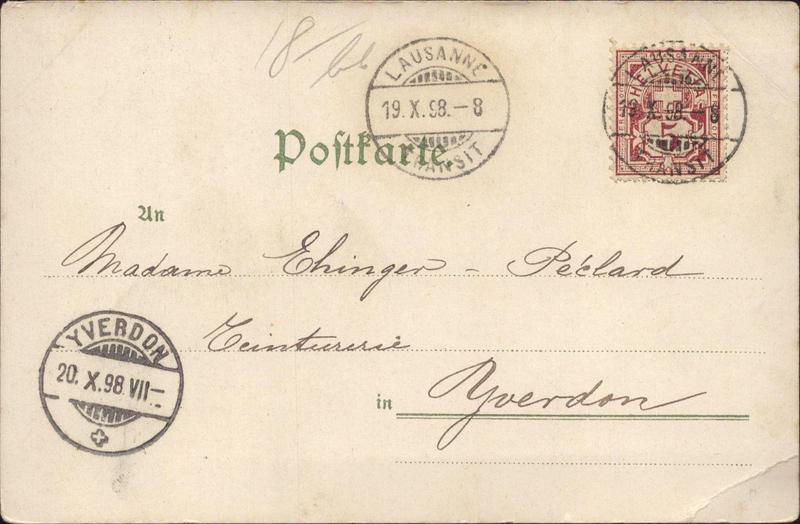 18/
LAUSANNE
19. X. 98. – 8
TRANSIT
HELVETIA
5
LAUSANNE
19. X. 98. – 8
TRANSIT
Postkarte.
An
Madame Ehinger - Péclard
Teinturerie
YVERDON
20. X. 98 VII –
in Yverdon